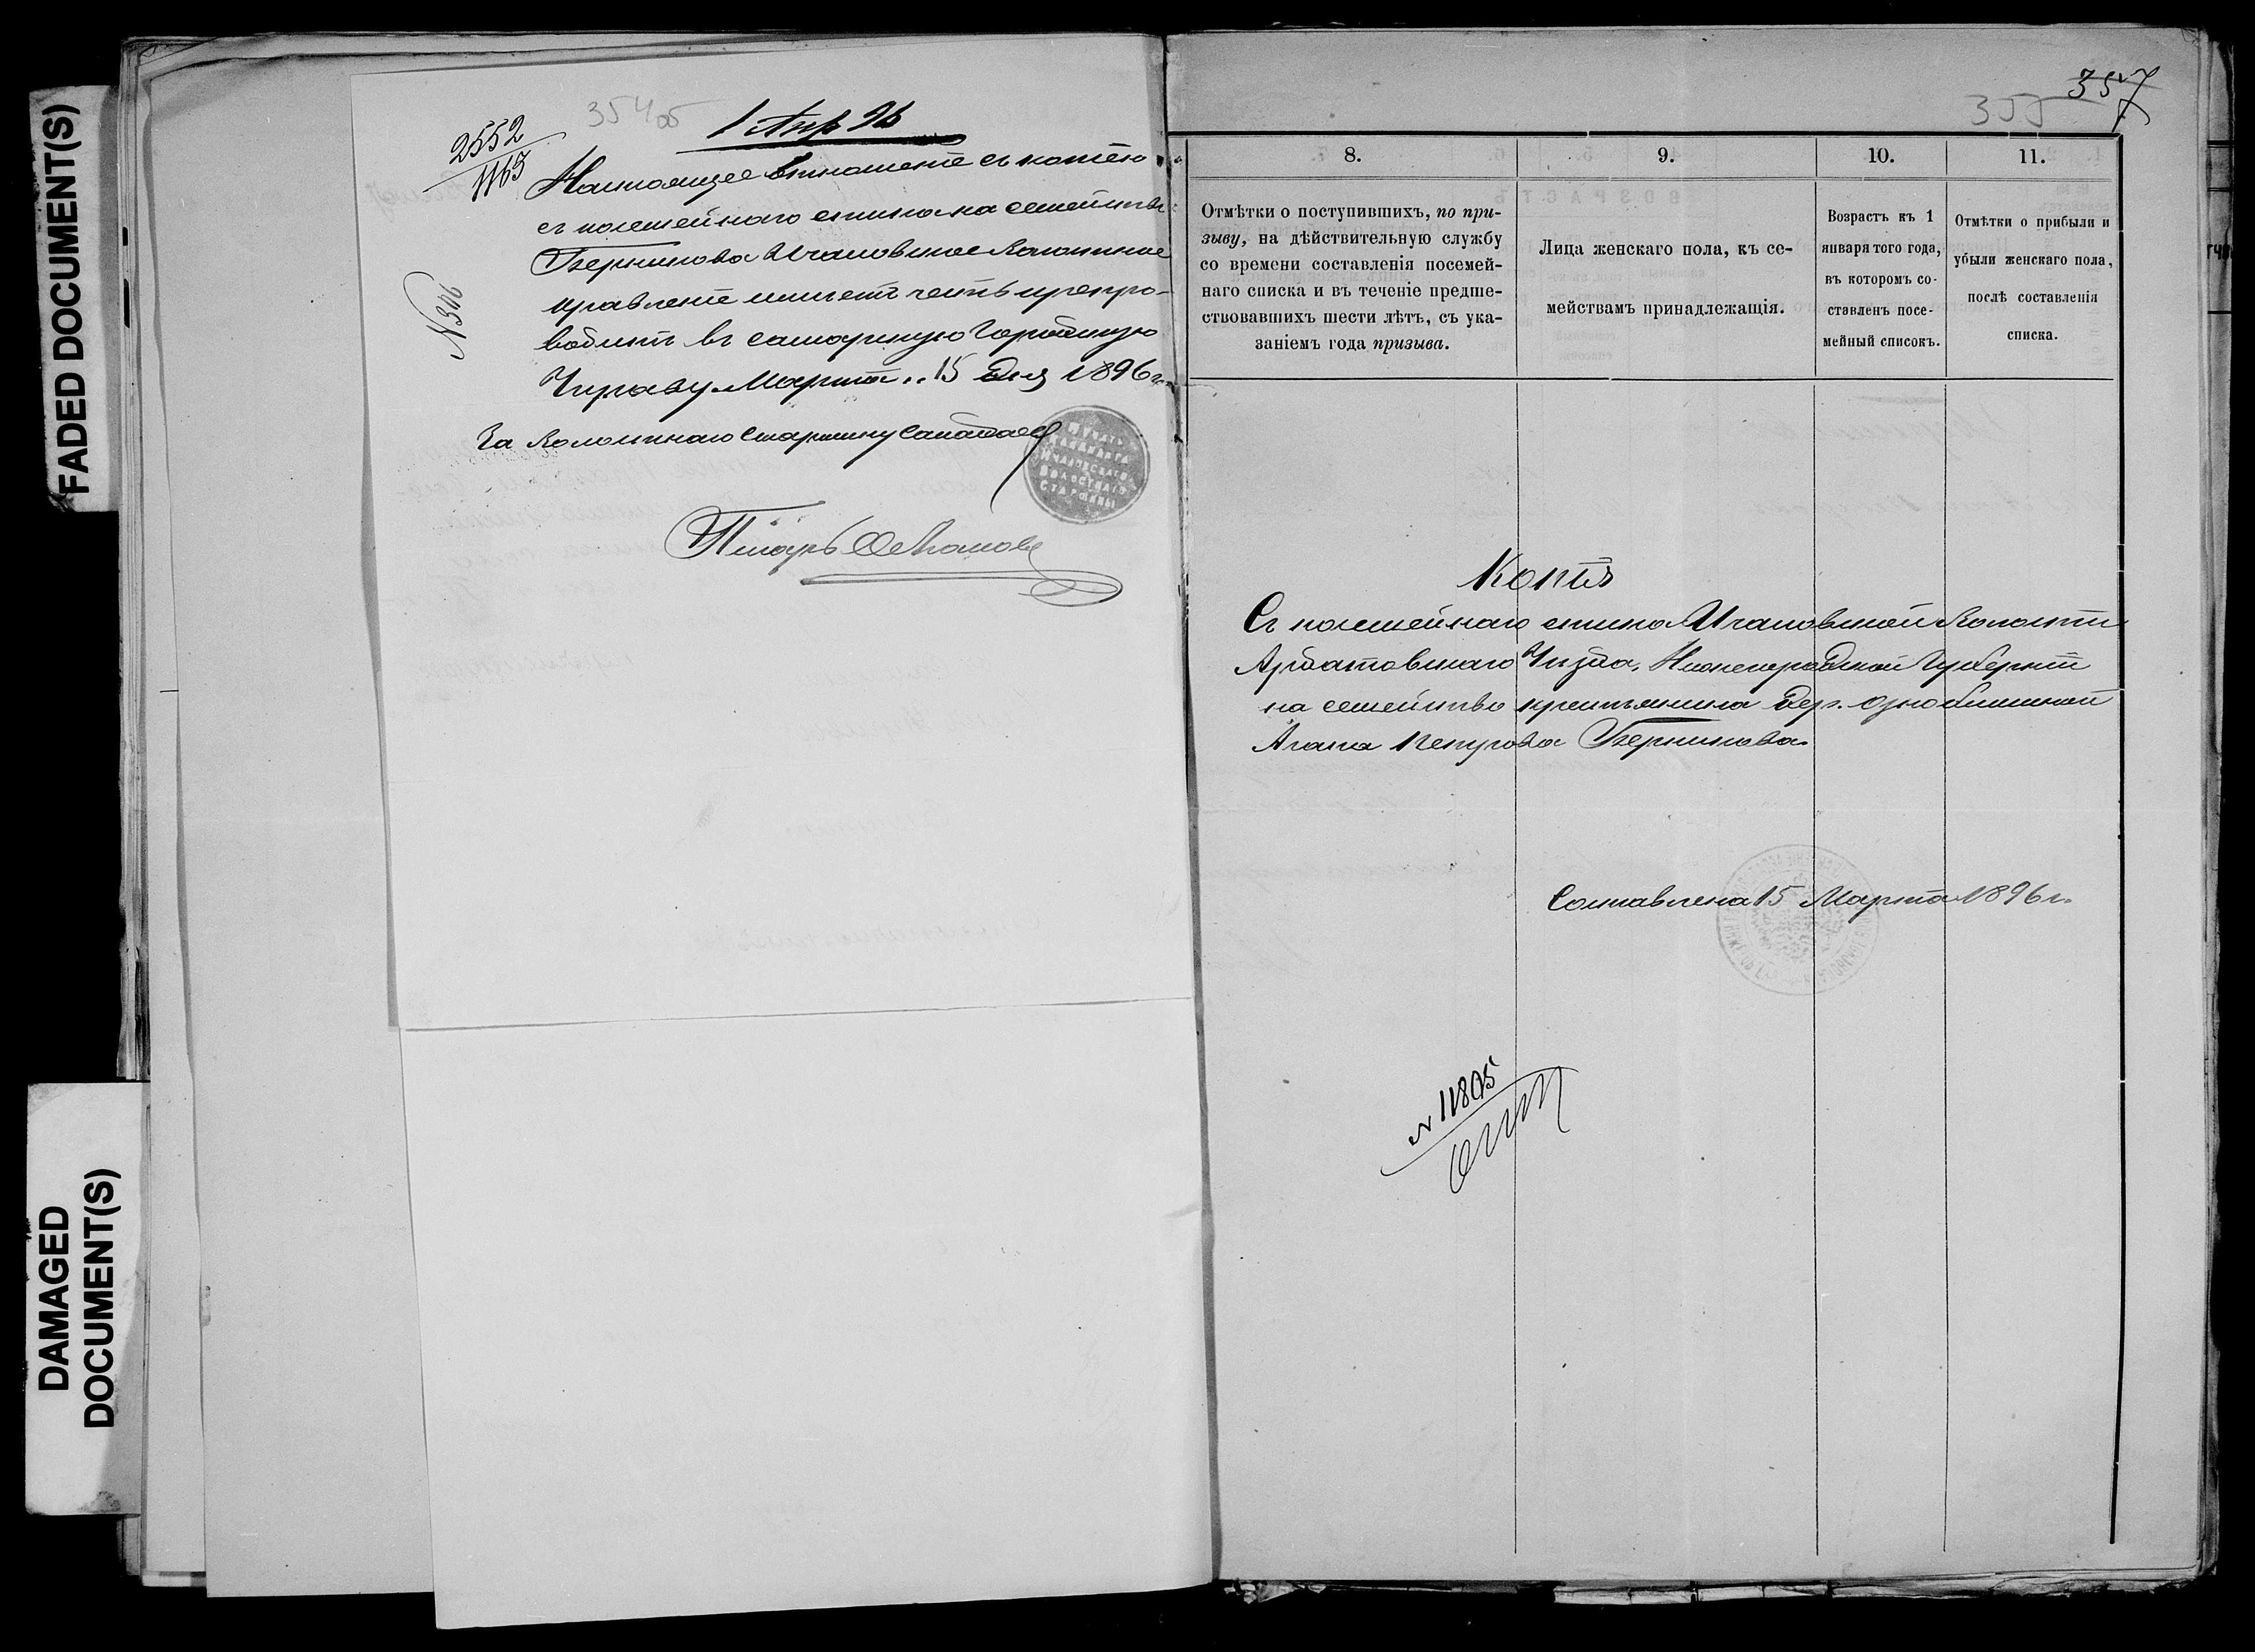 FADED DOCUMENT(S)
DAMAGED
DOCUMENT(S)
354 об
1 Апр 96
2552
1163
№ 346
Настоящее отношенiе съ копiею
съ посемейнаго списка на семейство
Берникова Ичаловское Волостное
правленiе имѣетъ честь препро-
водить въ Самарскую Городскую
Управу Марта 15 дня 1896 г.
За Волостнаго Старшину
ПЕЧАТЬ
КАНДИДАТА
ИЧАЛОВСКАГО
ВОЛОСТНАГО
СТАРШИНЫ
Писарь
357
355
8.
9.
10.
11.
Отмѣтки о поступившихъ, по при-
зыву, на дѣйствительную службу
со времени составленiя посемей-
наго списка и въ теченiе предше-
ствовавшихъ шести лѣтъ, съ ука-
занiемъ года призыва.
Лица женскаго пола, къ се-
мействамъ принадлежащiя.
Возрастъ къ 1
января того года,
въ которомъ со-
ставленъ посе-
мейный списокъ.
Отмѣтки о прибыли и
убыли женскаго пола,
послѣ составленiя
списка.
Копiя
Съ посемейнаго списка Ичаловской Волости
Ардатовскаго Уѣзда, Нижегородской Губернiи
на семейство крестьянина дер.
Агапа Петрова Берникова.
Составлена 15 Марта 1896 г.
№ 11805